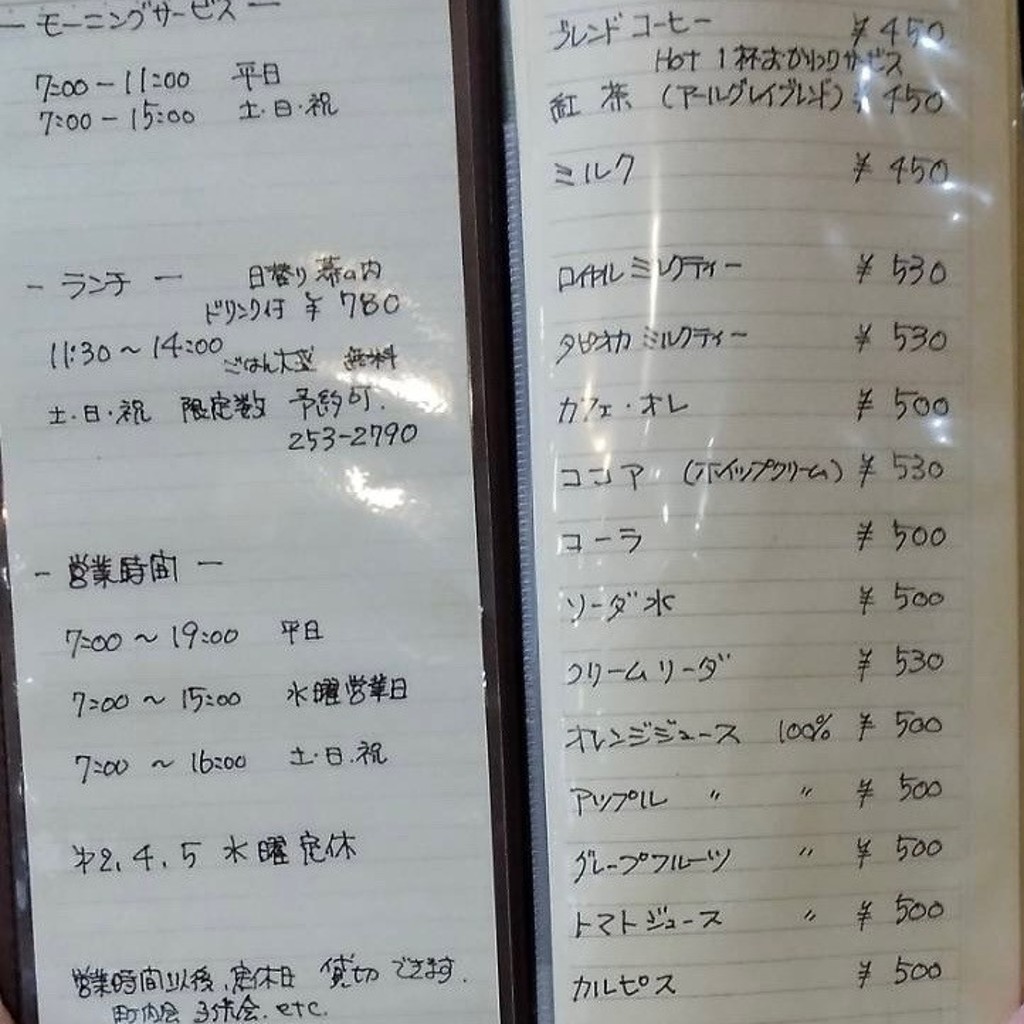 ― モーニングサービス ―
7:00 - 11:00 平日
7:00 - 15:00 土・日・祝
- ランチ - 日替り 幕の内
ドリンク付 ¥ 780
11:30 ~ 14:00 ごはん大盛 無料
土・日・祝 限定数 予約可.
253-2790
- 営業時間 -
7:00 ~ 19:00 平日
7:00 ~ 15:00 水曜営業日
7:00 ~ 16:00 土・日・祝
才2, 4, 5 水曜定休
営業時間以後、定休日 貸切 できます.
町内会 etc.
ブレンド コーヒー ¥ 450
Hot 1杯おかわりサービス
紅 茶 (アールグレイブレンド) ¥ 450
ミルク ¥ 450
ロイヤル ミルクティー ¥ 530
タピオカ ミルクティー ¥ 530
カフェ・オレ ¥ 500
ココア (ホイップクリーム) ¥ 530
コーラ ¥ 500
ソーダ水 ¥ 500
クリームソーダ ¥ 530
オレンジジュース 100% ¥ 500
アップル 〃 〃 ¥ 500
グレープフルーツ 〃 ¥ 500
トマトジュース 〃 ¥ 500
カルピス ¥ 500